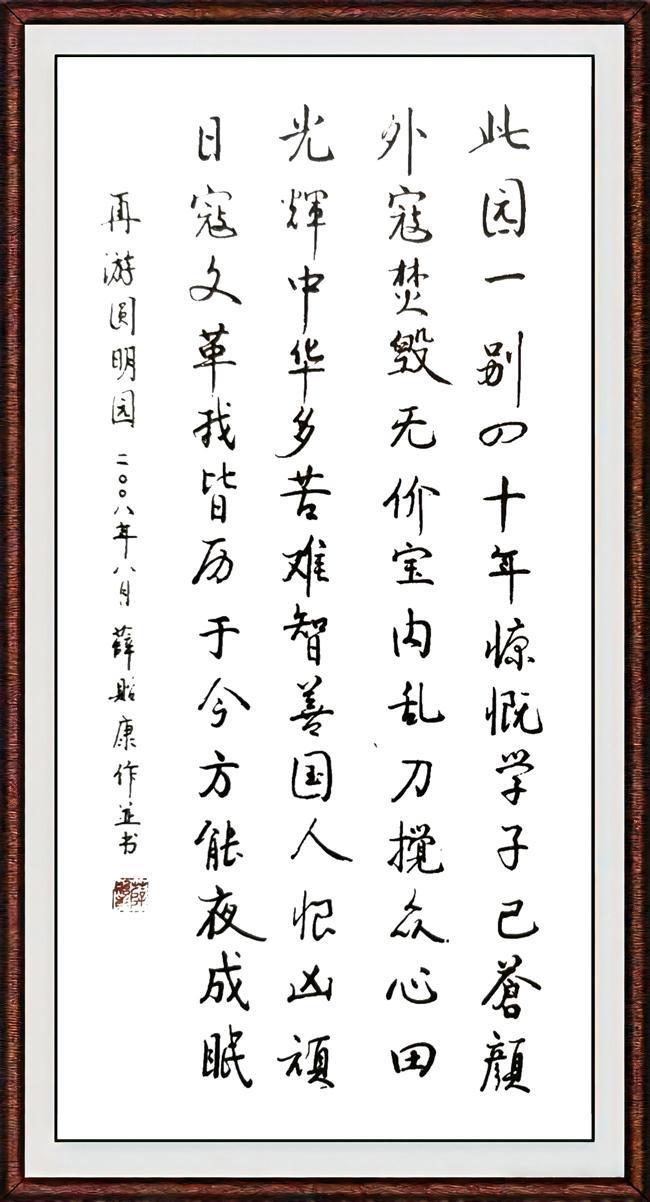 此园一别四十年慷慨学子已苍颜
外寇焚毁无价宝内乱刀搅众心田
光辉中华多苦难智善国人恨凶顽
日寇文革我皆历于今方能夜成眠
再游圆明园 二〇〇八年八月 薛贻康作並书